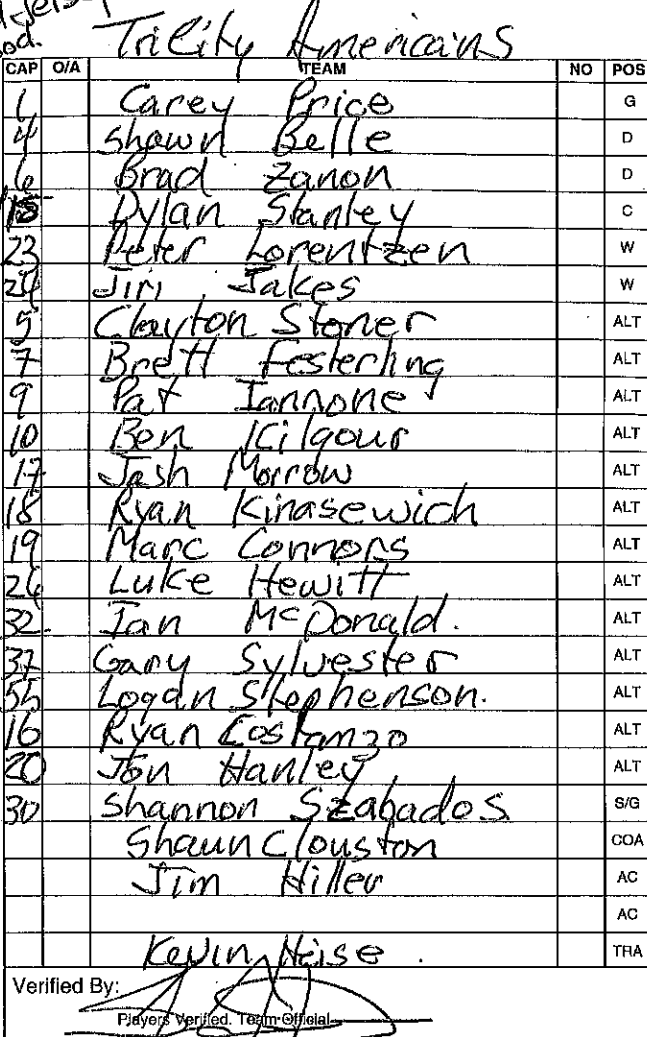 od. Tricity Americans
CAP O/A TEAM NO POS
1 Carey Price G
4 Shawn Belle D
6 Brad Zanon D
15 Dylan Stanley C
23 Peter Lorentzen W
24 Jiri Jakes W
5 Clayton Stoner ALT
7 Brett Festerling ALT
9 Pat Iannone ALT
10 Ben Kilgour ALT
17 Josh Morrow ALT
18 Ryan Kinasewich ALT
19 Marc Connors ALT
26 Luke Hewitt ALT
32 Ian McDonald. ALT
37 Gary Sylvester ALT
55 Logan Stephenson. ALT
16 Ryan Costanzo ALT
20 Jon Hanley ALT
30 Shannon Szabados S/G
Shaun Clouston COA
Jim Hiller AC
AC
Kevin Heise. TRA
Verified By:
Players Verified. Team Official